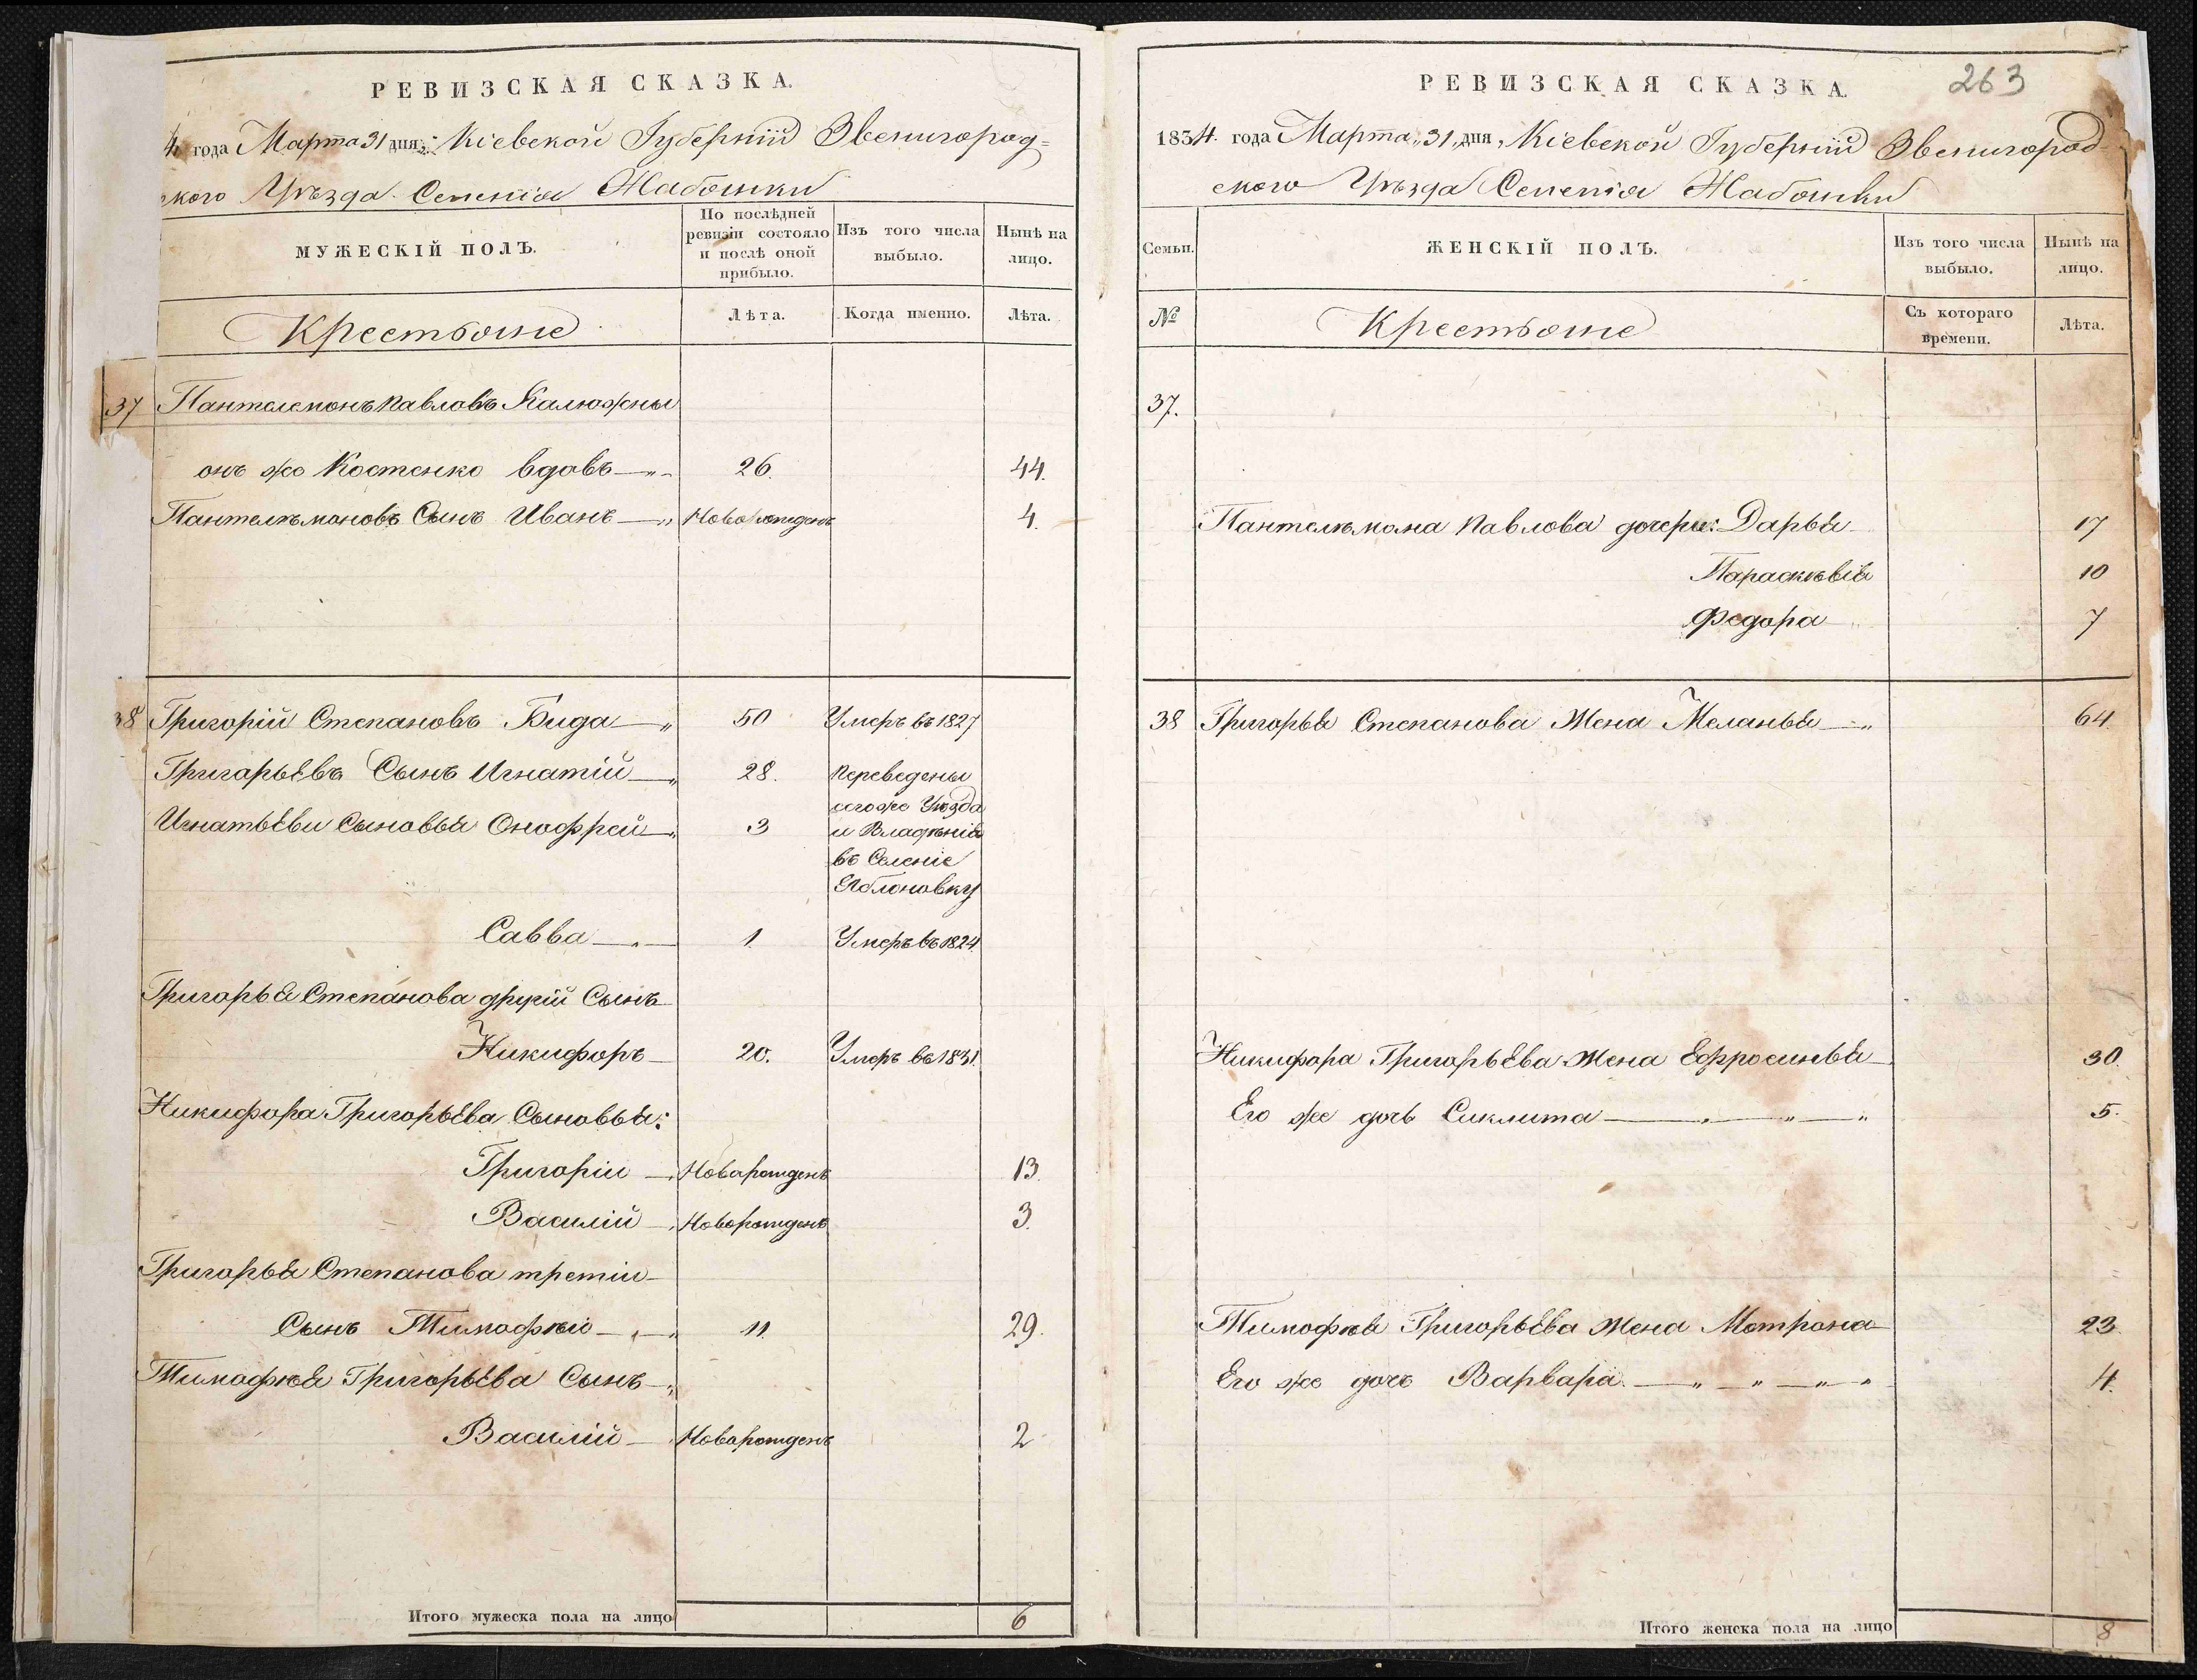 РЕВИЗСКАЯ СКАЗКА.
4 года Марта 31 дня, Кіевской Губерніи Звенигород=
ского Уѣзда Селенія Жабошки
МУЖЕСКІЙ ПОЛЪ.
По послѣдней ревизіи состояло и послѣ оной прибыло.
Изъ того числа выбыло.
Нынѣ на лицо.
Крестьяне
Лѣта.
Когда именно.
Лѣта.
37 Пантелемонъ Павловъ Калюжны
онъ же Костенко вдовъ 26. 44.
Пантелѣмоновъ Сынъ Иванъ Новорожденъ 4.
38 Григорій Степановъ Бида 50 Умеръ въ 1827
Григорьевъ Сынъ Игнатій 28. Переведены
сего же Уѣзда
Игнатьеви Сыновья Онофрей 3 и Владѣнія
въ Селеніе
Яблоновку
Савва 1. Умеръ въ 1824.
Григорья Степанова другій Сынъ
Никифоръ 20. Умеръ въ 1831.
Никифора Григорьева Сыновья:
Григорій Новорожденъ 13.
Василій Новорожденъ 3.
Григорья Степанова третій
Сынъ Тимофѣй 11. 29.
Тимофѣя Григорьева Сынъ
Василій Новорожденъ 2
Итого мужеска пола на лицо 6
РЕВИЗСКАЯ СКАЗКА.
263
1834. года Марта „31„ дня, Кіевской Губерніи Звенигород
ского Уѣзда Селенія Жабошки
Семьи.
ЖЕНСКІЙ ПОЛЪ.
Изъ того числа выбыло.
Нынѣ на лицо.
№
Крестьяне
Съ котораго времени.
Лѣта.
37.
Пантелѣмона Павлова дочери: Дарья 17
Параскѣвія 10
Федора 7
38 Григорья Степанова Жена Меланья 64.
Никифора Григорьева Жена Ефросинья 30.
Его же дочь Сиклита 5.
Тимофѣя Григорьева Жена Мотрона 23.
Его же дочъ Варвара 4.
Итого женска пола на лицо 8